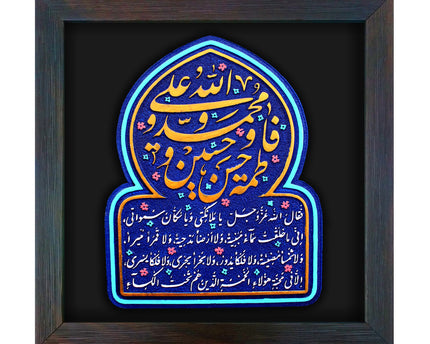 الله
محمد و علی و
فاطمة و حسن و حسین
فَقالَ اللهُ عَزَّوَجَلَّ یا مَلائِکَتی وَیا سُکّانَ سَمواتی،
اِنّی ما خَلَقتُ سَماءً مَبنِیَّةً، وَلا اَرضاً مَدحِیَّةً، وَلا قَمَراً مُنیراً،
وَلا شَمساً مُضیئَةً، وَلا فَلَکاً یَدُورُ، وَلا بَحراً یَجری، وَلا فُلکاً یَسری،
اِلّا فی مَحَبَّةِ هؤُلاءِ الخَمسَةِ الَّذینَ هُم تَحتَ الکِساءِ